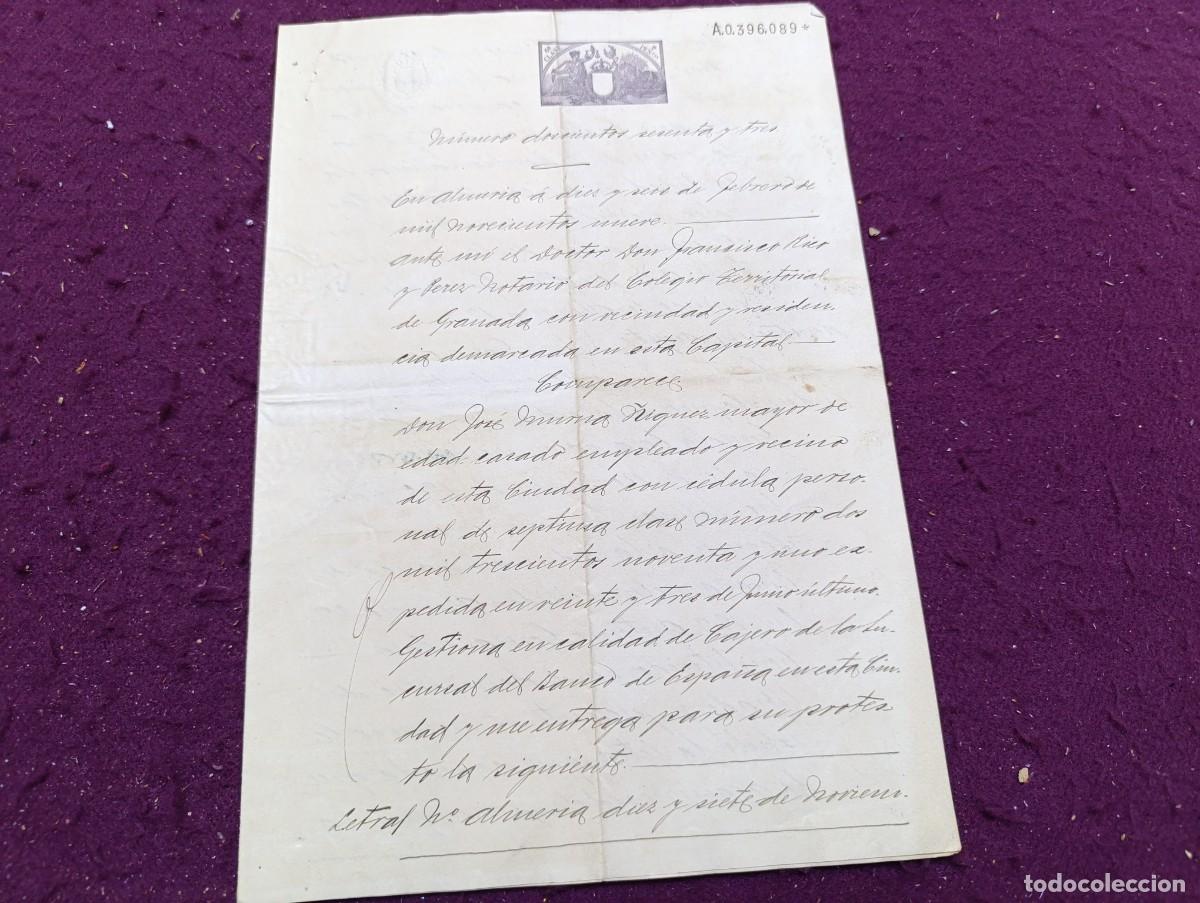 A.0.396.089*
Número doscientos sesenta y tres
En Almeria á diez y seis de Febrero de
mil novecientos nueve.
Ante mí el Doctor Don Francisco Rico
y Perez Notario del Colegio Territorial
de Granada con vecindad y residen-
cia demarcada en esta Capital
Comparece
Don José Murna Ñiguez mayor de
edad casado empleado y vecino
de esta Ciudad con cédula perso-
nal de septima clase número dos
mil trescientos noventa y uno ex-
pedida en veinte y tres de Junio último.
Gestiona en calidad de Cajero de la Su-
cursal del Banco de España en esta Ciu-
dad y me entrega para su protes-
to la siguiente.
Letra Nº. Almeria diez y siete de Noviem-
todocoleccion